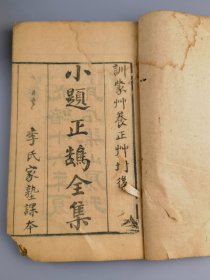 訓蒙艸養正艸封後
小題正鵠全集
李氏家塾課本